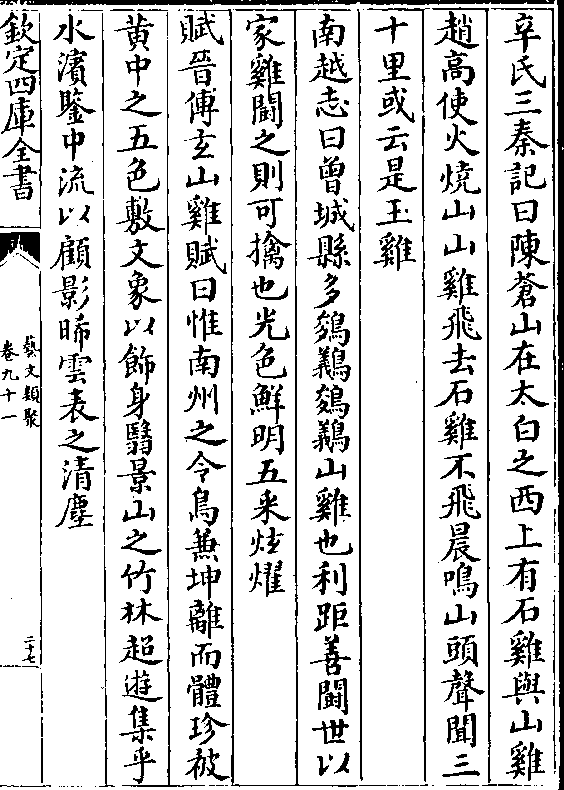 辛氏三秦記曰陳蒼山在太白之西上有石雞與山雞
趙高使火燒山山雞飛去石雞不飛晨鳴山頭聲聞三
十里或云是玉雞
南越志曰曾城縣多鵕䴊鵕䴊山雞也利距善鬭世以
家雞鬭之則可擒也光色鮮明五采炫燿
賦晉傅玄山雞賦曰惟南州之令鳥兼坤離而體珍被
黃中之五色敷文象以飾身翳景山之竹林超遊集乎
水濱鑒中流以顧影晞雲表之清塵
欽定四庫全書
藝文類聚
卷九十一
二十七